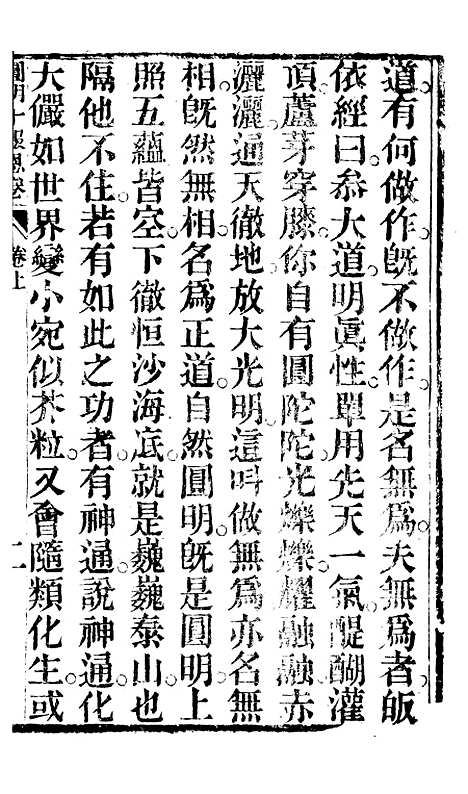 道有何做作旣不做作是名無爲夫無爲者皈
依經曰叅大道明眞性單用先天一氣醍醐灌
頂蘆芽穿膝你自有圓陀陀光爍爍耀融融赤
灑灑通天徹地放大光明這叫做無爲亦名無
相旣然無相名爲正道自然圓明旣是圓明上
照五蘊皆空下徹恒沙海底就是巍巍泰山也
隔他不住若有如此之功者有神通說神通化
大儼如世界變小宛似芥粒又會隨類化生或
卷上 二